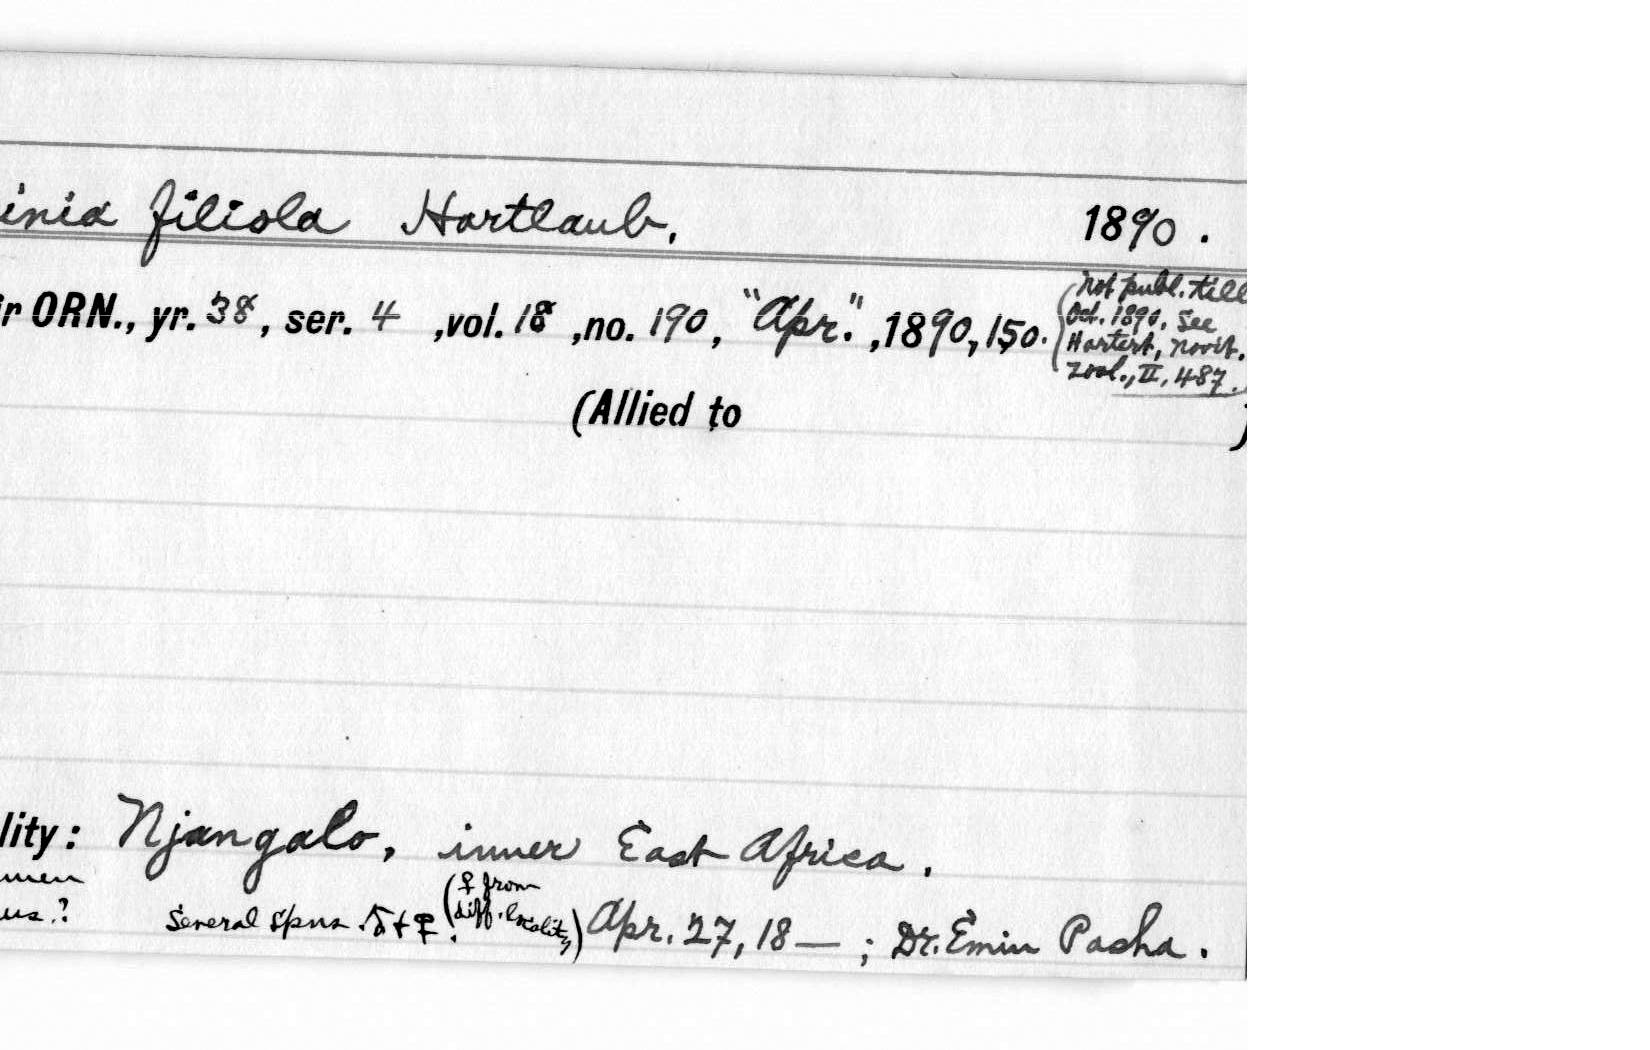 inia filiola Hartlaub. 1890.
ir ORN., yr. 38, ser. 4 ,vol. 18 ,no. 190, "Apr." ,1890,150.
(not publ. till
Oct. 1890. See
Hartert, Novit.
Zool., II, 487.)
(Allied to )
lity: Njangalo, inner East Africa.
men
us.? Several spns. ♂ + ♀. (♀ from
diff. locality) Apr. 27, 18— ; Dr. Emin Pasha.